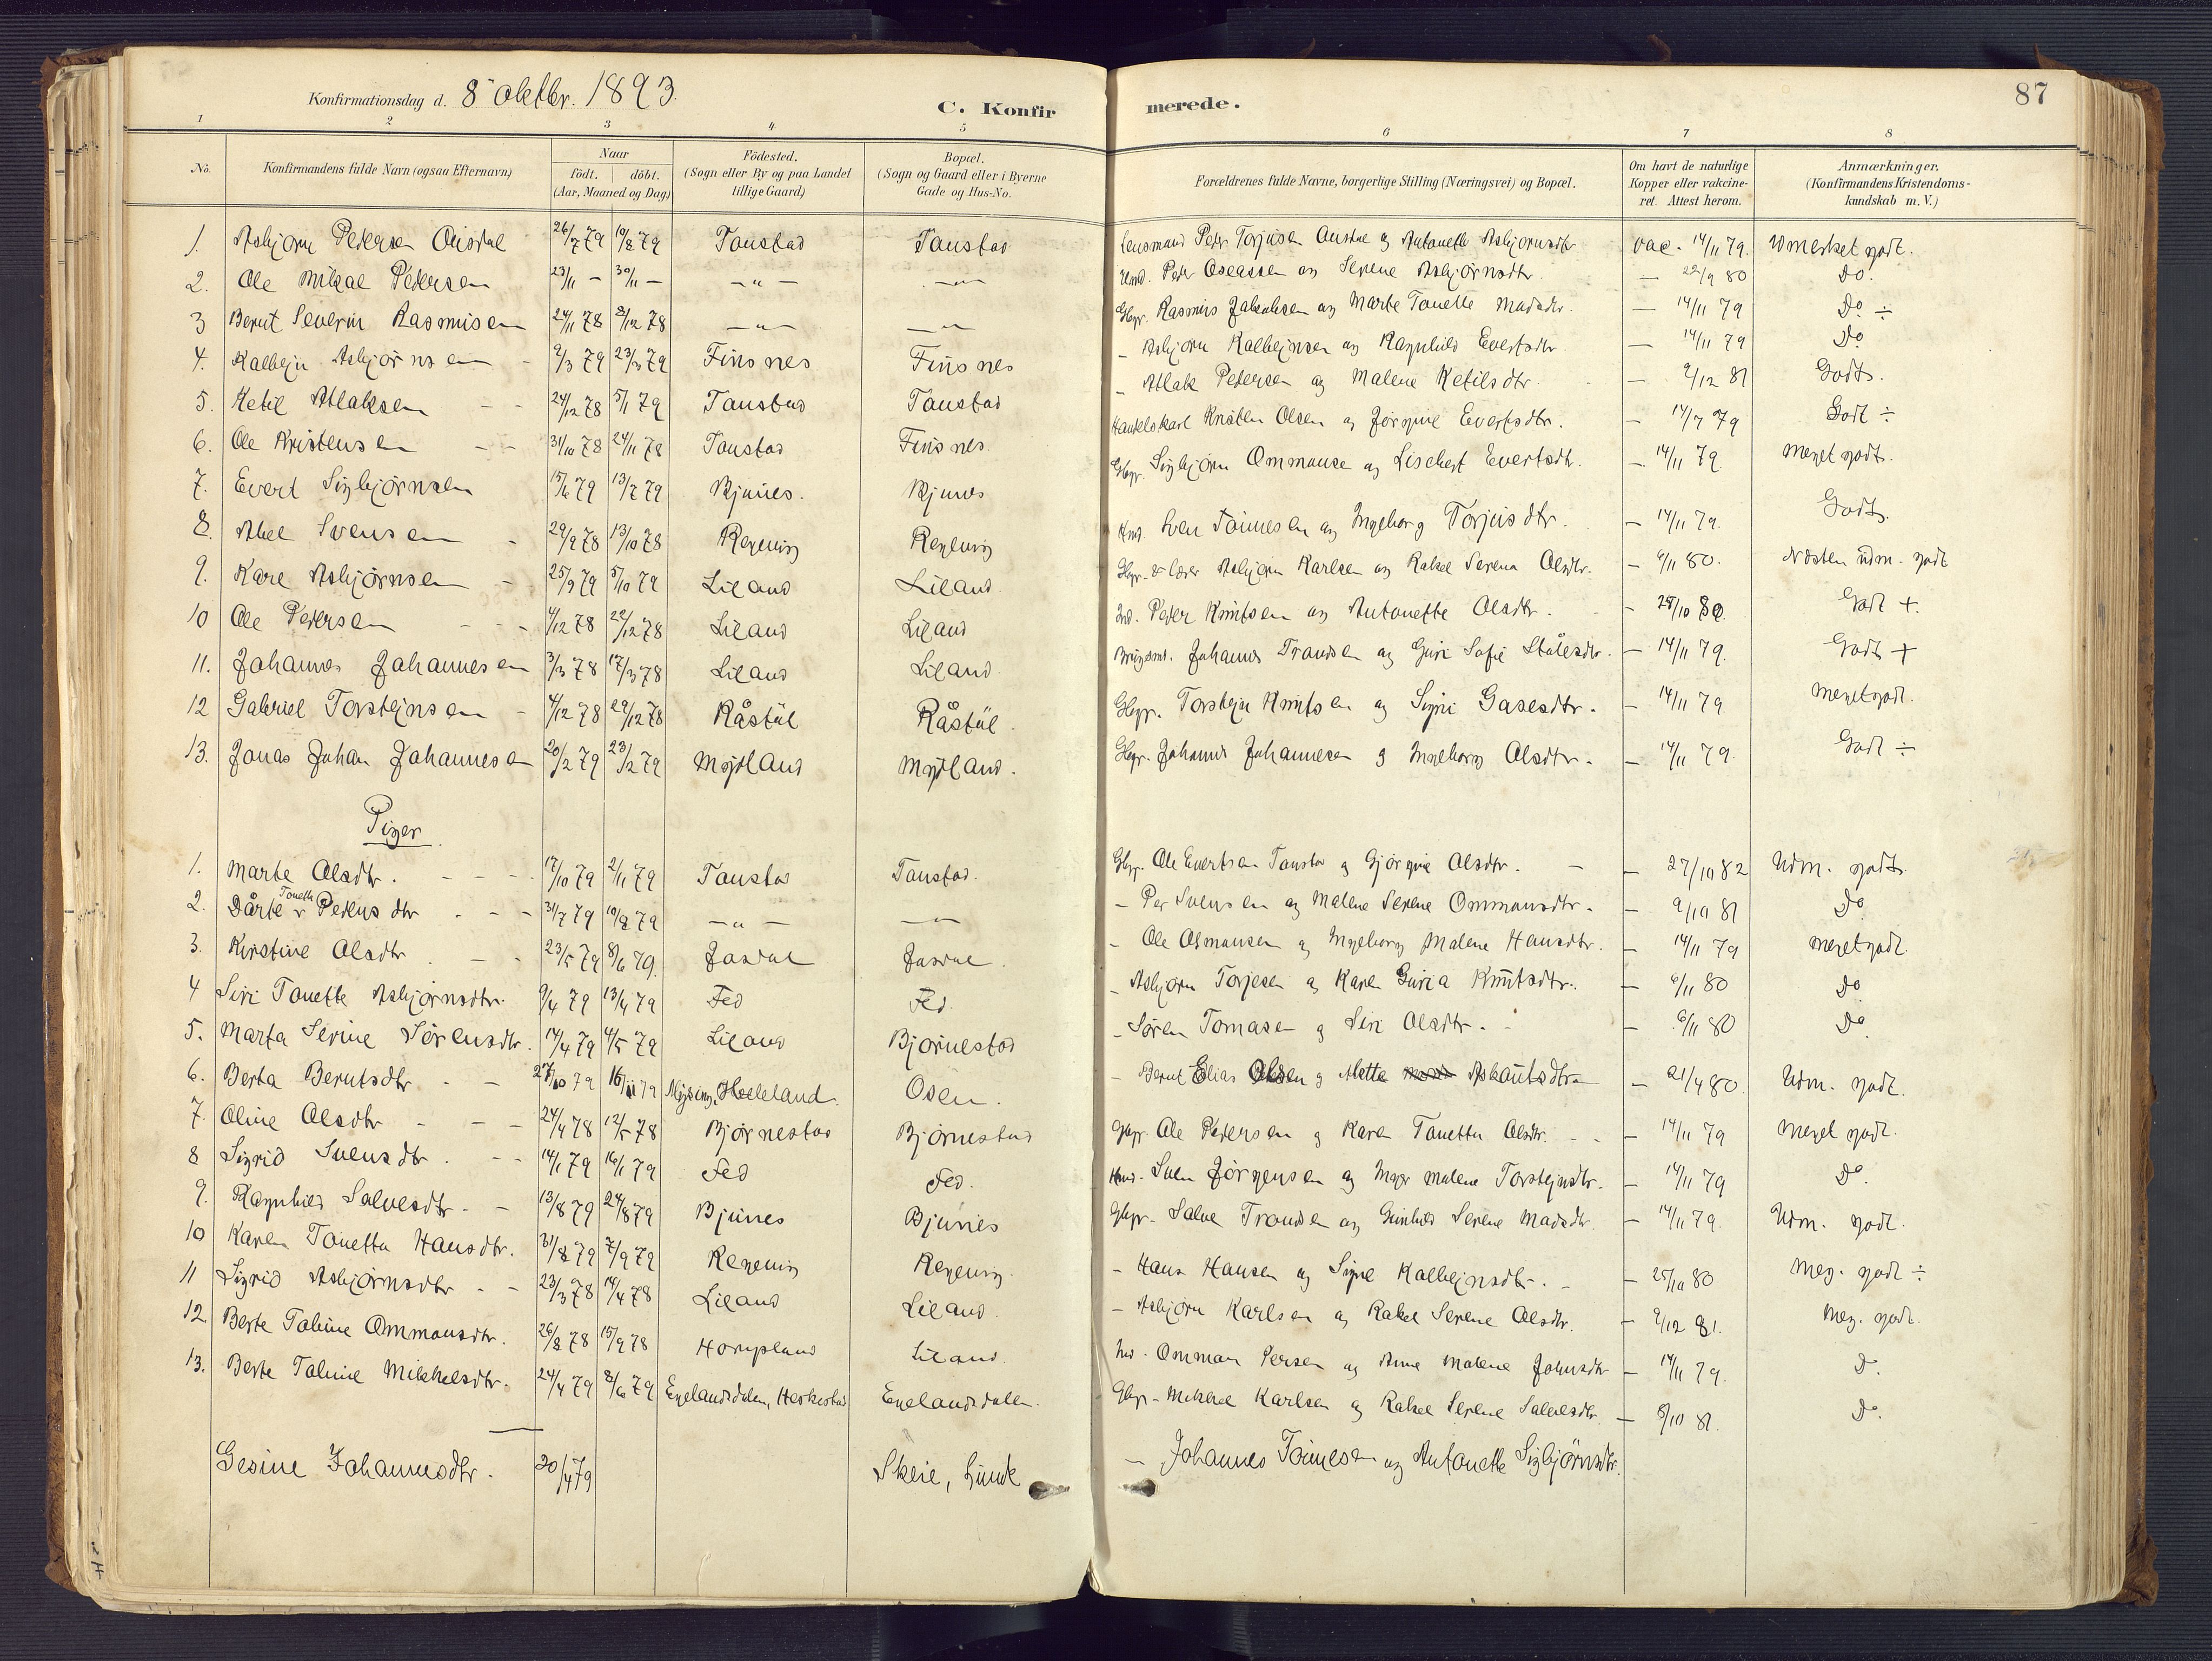 Konfirmationsdag d. 8 oktbr. 1893.
C. Konfirmerede.
87
1 2 3 4 5 6 7 8
No. Konfirmandens fulde Navn (ogsaa Efternavn) Naar födt. döbt. (Aar, Maaned og Dag) Födested. (Sogn eller By og paa Landet tillige Gaard) Bopæl. (Sogn og Gaard eller i Byerne Gade og Hus-No. Forældrenes fulde Navne, borgerlige Stilling (Næringsvei) og Bopæl. Om havt de naturlige Kopper eller vakcineret. Attest herom. Anmærkninger. (Konfirmandens Kristendomskundskab m. V.)
1. Asbjørn Pedersen 26/7 79 10/8 79 Tonstad Tonstad Lensmand Peder Torjusen og Antonette Asbjornsdtr. vac. 14/11 79. Udmerket godt.
2. Ole Mikal Pedersen 23/11 - 30/11 - -"- -"- Peder Oseassen og Serene Asbjørnsdtr. - 22/9 80 Do.
3 Bernt Severin Rasmusen 24/11 78 8/12 78 -"- -"- Gbgr. Rasmus Jakobsen og Marte Tonette Madsdtr. - 14/11 79 Do ÷
4. Kalleijn Asbjørnsen - 9/3 79 23/3 79 Finsnes Finsnes - Asbjørn Kalleijnsen og Ragnhild Evertsdtr. - 14/11 79 Do
5. Ketil Atlaksen - - 24/12 78 5/1 79 Tonstad Tonstad - Atlak Pedersen og Malene Ketilsdtr. - 9/12 81 Godt.
6. Ole Kristensen - - 31/10 78 24/11 78 Tonstad Finsnes. Handelskarl Kristen Olsen og Jørgine Evertsdtr. - 14/7 79 Godt ÷
7. Evert Sigbjørnsen 15/6 79 13/7 79 Bjunes. Bjunes Gbgr. Sigbjørn Ommonsen og Lisebet Evertsdtr. - 14/11 79 Meget godt.
8. Abel Svensen - 29/9 78 13/10 78 Regevig Regevig Sven Tønnesen og Ingeborg Torjusdtr. - 14/11 79. Godt.
9. Karl Asbjørnsen - 25/9 79 5/10 79 Liland Liland. Gbgr. & lærer Asbjørn Karlsen og Rakel Serena Olsdtr. - 6/11 80. Næsten udm. godt
10 Ole Pedersen - - - 4/12 78 22/12 78 Liland Liland Peder Knutsen og Antonette Olsdtr. - 28/10 80. Godt +.
11. Johannes Johannesen 3/3 78 17/3 78 Liland Liland Johannes Trondsen og Guri Sofie Stålesdtr. - 14/11 79. Godt +
12 Gabriel Torstejnsen - 4/12 78 29/12 78 Råstøl Råstøl. Gbgr. Torstejn Knutsen og Signi Gasesdtr. - 14/11 79 Meget godt.
13. Jonas Johan Johannesen 20/2 79 23/2 79 Mydland Mydland. Gbgr. Johannes Johannesen og Ingeborg Olsdtr. - 14/11 79. Godt ÷
Piger
1. Marte Olsdtr. - - - 17/10 79 2/11 79 Tonstad Tonstad. Gbgr. Ole Evertsen Tonstad og Gjørgine Olsdtr. - - 27/10 82 Udm. godt.
2. Dårte Tonette Pedersdtr - - - 31/7 79 10/8 79 -"- -"- - Per Svensen og Malene Serene Ommonsdtr. - 9/10 81 Do
3. Kirstine Olsdtr. - - 23/5 79 8/6 79. Josdal Josdal. - Ole Osmonsen og Ingeborg Malene Hansdtr. - 14/11 79 Meget godt.
4 Siri Tonette Asbjørnsdtr. 9/4 79 13/4 79 Fed Fed. - Asbjørn Torjesen og Karen Guria Knutsdtr. - 6/11 80 Do
5. Marta Serine Sørensdtr. 14/4 79 4/5 79 Liland Bjørnestad - Søren Tomasen og Siri Olsdtr. - - 6/11 80 Do.
6. Berta Berntsdtr - - 27/10 79 16/11 79 Mysing, Helleland. Osen. - Bernt Elias Olsen og Alette Askautsdtr - 21/4 80 Udm. godt.
7. Oline Olsdtr - - - 24/4 78 12/5 78 Bjørnestad Bjørnestad Gbgr. Ole Pedersen og Karen Tonetta Olsdtr. - - - 14/11 79 Meget godt.
8 Sigrid Svensdtr. - - 14/1 79 16/1 79 Fed Fed. Sven Jørgensen og Malene Torstejnsdtr. - 14/11 79 Do.
9. Ragnhild Salvesdtr. - - 13/8 79 24/8 79 Bjunes Bjunes Gbgr. Salve Trondsen og Gunhild Serene Madsdtr. - 14/11 79. Udm. godt.
10 Karen Tonetta Hansdtr. 31/8 79 7/9 79 Regevig Regevig. - Hans Hansen og Signe Kalleijnsdtr. - - 25/10 80 Meg. godt ÷
11 Sigrid Asbjørnsdtr - - 23/3 78 14/4 78 Liland Liland. - Asbjørn Karlsen og Rakel Serene Olsdtr. - 9/12 81. Meg. godt.
12. Berte Tobine Ommonsdtr. 26/8 78 15/9 78 Hompland Liland. Ommon Persen og Anne Malene Johnsdtr - 14/11 79. Do.
13. Berte Taline Mikkelsdtr. 24/4 79 8/6 79 Egelandsdalen, Heskestad Egelandsdalen. Gbgr. Mikkel Karlsen og Rakel Serene Salvesdtr. - 8/10 81. Do.
Gesine Johannesdtr. 20/4 79 Skeie, Lunde - Johannes Tønnesen og Antonette Sigbjörnsdtr.